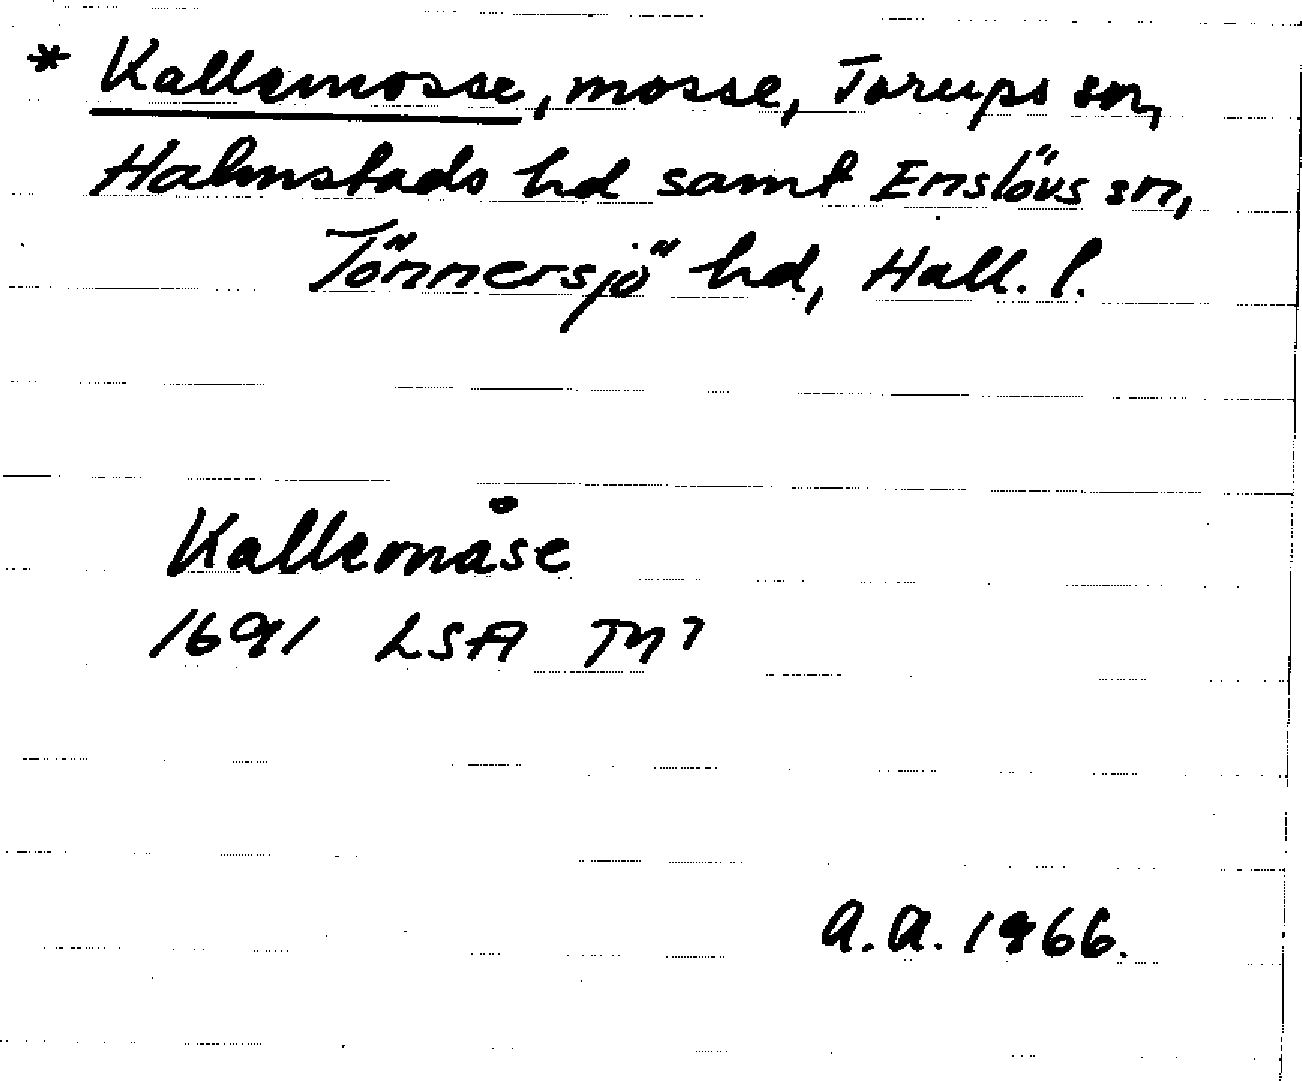 * Kallemosse, mosse, Torups sn,
Halmstads hd samt Enslövs sn,
Tönnersjö hd, Hall. l.
Kallemåse
1691 LSA TM7
A.A. 1966.